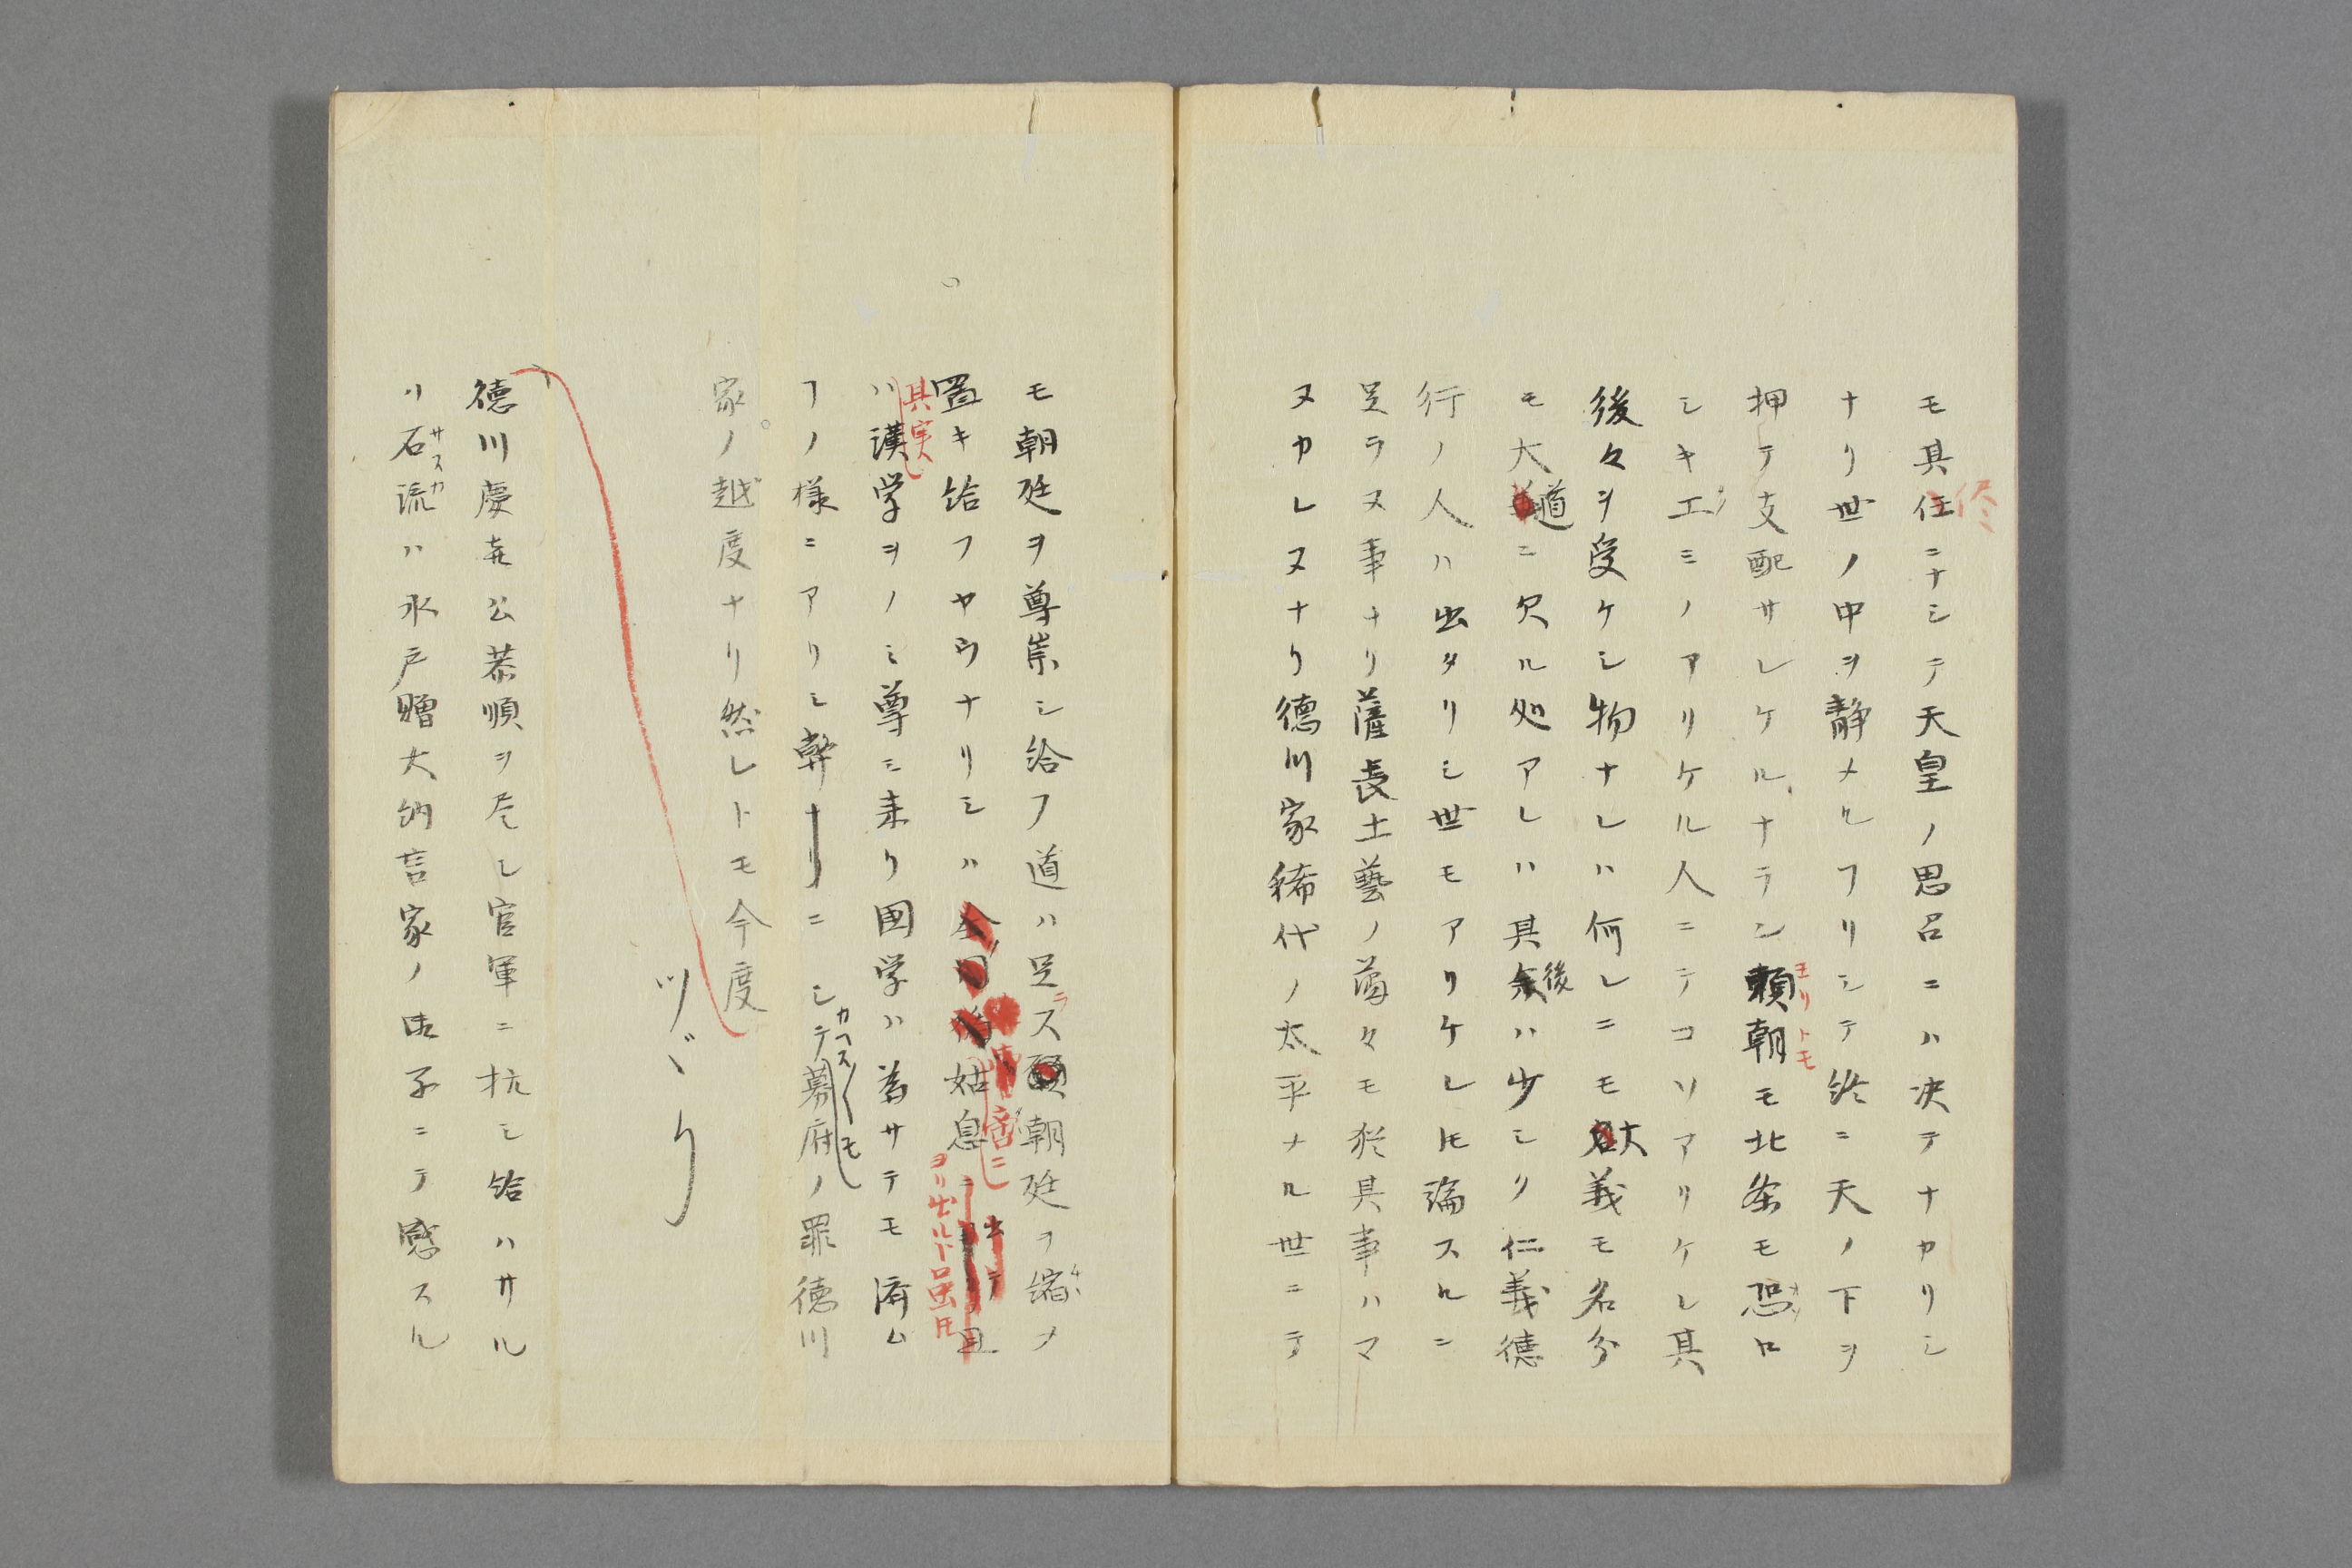 モ其任ニナシテ天皇ノ思召ニハ決テナカリシ
侭
ナリ世ノ中ヲ静メルフリシテ終ニ天ノ下ヲ
押テ支配サレケルナラン頼朝モ北条モ恐ロ
ヨリトモ
シキエミノアリケル人ニテコソアリケレ其
後々ヲ受ケシ物ナレハ何レニモ大義モ名分
モ大道ニ欠ル処アレハ其後ハ少シク仁義徳
行ノ人ハ出タリシ世モアリケレ圧論スルニ
足ラヌ事ナリ薩長土藝ノ藩々モ猶其事ハマ
ヌカレヌナリ徳川家稀代ノ太平ナル世ニテ
モ朝廷ヲ尊崇シ給フ道ハ足ラス朝廷ヲ縮メ
置キ給フヤウナリシハ姑息
ヨリ出ル
其実
ハ漢学ヲノミ尊ミ来リ国学ハ為サテモ済ム
フノ様ニアリシ弊ナリニシテ幕府ノ罪徳川
家ノ越度ナリ然レトモ今度
ツヾリ
徳川慶喜公恭順ヲ尽シ官軍ニ抗シ給ハサル
ハ石流ハ水戸贈大納言家ノ御子ニテ感スル
サスカ